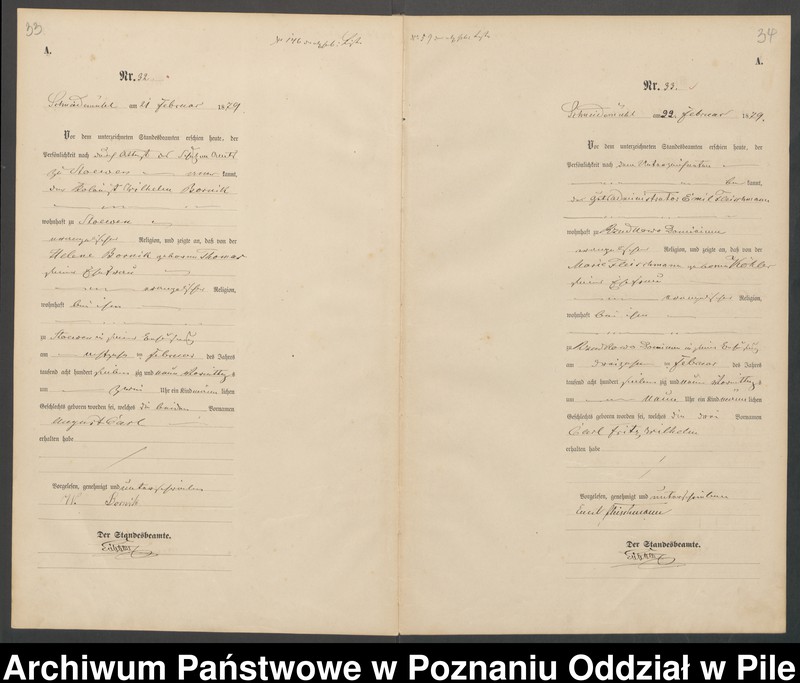 33.
A.
Nr. 32.
Schneidemühl am 21 Februar 1879
Vor dem unterzeichneten Standesbeamten erschien heute, der
Persönlichkeit nach durch Attest des
zu Stoewen kannt,
der Wilhelm Bornik
wohnhaft zu Stoewen
evangelischer Religion, und zeigte an, daß von der
Helene Bornik geborene Thomas
seiner Ehefrau
evangelischer Religion,
wohnhaft bei ihm
zu Stoewen in seiner Behausung
am Februar des Jahres
tausend acht hundert siebenzig und neun Vormittags
um zwei Uhr ein Kind männlichen
Geschlechts geboren worden sei, welches die beiden Vornamen
August Carl
erhalten habe
Vorgelesen, genehmigt und unterschrieben
W. Bornik
Der Standesbeamte.
34
A.
Nr. 33.
Schneidemühl am 22. Februar 1879.
Vor dem unterzeichneten Standesbeamten erschien heute, der
Persönlichkeit nach dem Unterzeichneten
bekannt,
der Gutsadministrator Emil Fleischmann
wohnhaft zu Dominium
evangelischer Religion, und zeigte an, daß von der
Marie Fleischmann geborene Köhler
seiner Ehefrau
evangelischer Religion,
wohnhaft bei ihm
zu Dominium in seiner Behausung
am Februar des Jahres
tausend acht hundert siebenzig und neun Vormittags
um neun Uhr ein Kind männlichen
Geschlechts geboren worden sei, welches die drei Vornamen
Carl Fritz Wilhelm
erhalten habe
Vorgelesen, genehmigt und unterschrieben
Emil Fleischmann
Der Standesbeamte.
Archiwum Państwowe w Poznaniu Oddział w Pile